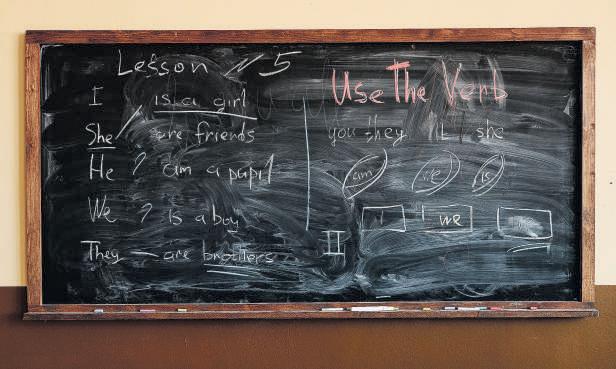 Lesson 5
I is a girl
She are friends
He ? am a pupil
We ? is a boy
They — are brothers
Use The Verb
you they I she
am is
I we
II